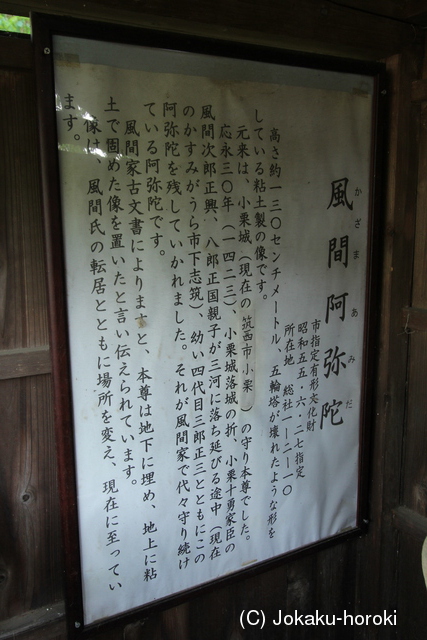 かざまあみだ
風間阿弥陀
市指定有形文化財
昭和五五・六・二七指定
所在地 総社一ー二ー一〇
高さ約一三〇センチメートル、五輪塔が壊れたような形を
している粘土製の像です。
元来は、小栗城（現在の筑西市小栗）の守り本尊でした。
応永三〇年（一四二三）、小栗城落城の折、小栗十勇家臣の
風間次郎正興、八郎正国親子が三河に落ち延びる途中（現在
のかすみがうら市下志筑）、幼い四代目三郎正三とともにこの
阿弥陀を残していかれました。それが風間家で代々守り続け
ている阿弥陀です。
風間家古文書によりますと、本尊は地下に埋め、地上に粘
土で固めた像を置いたと言い伝えられています。
像は、風間氏の転居とともに場所を変え、現在に至ってい
ます。
(C) Jokaku-horoki